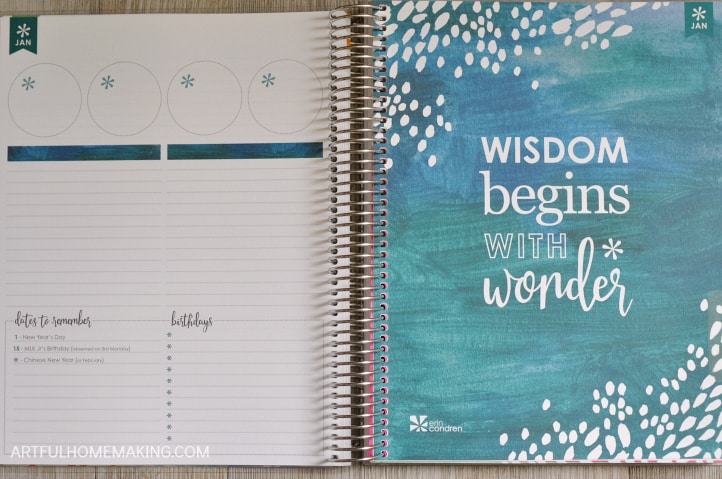 JAN
dates to remember
birthdays
1 - New Year's Day
15 - MLK Jr's Birthday (observed on 3rd Monday)
✻ - Chinese New Year (or February)
ARTFULHOMEMAKING.COM
JAN
WISDOM
begins
WITH
wonder
erin
condren